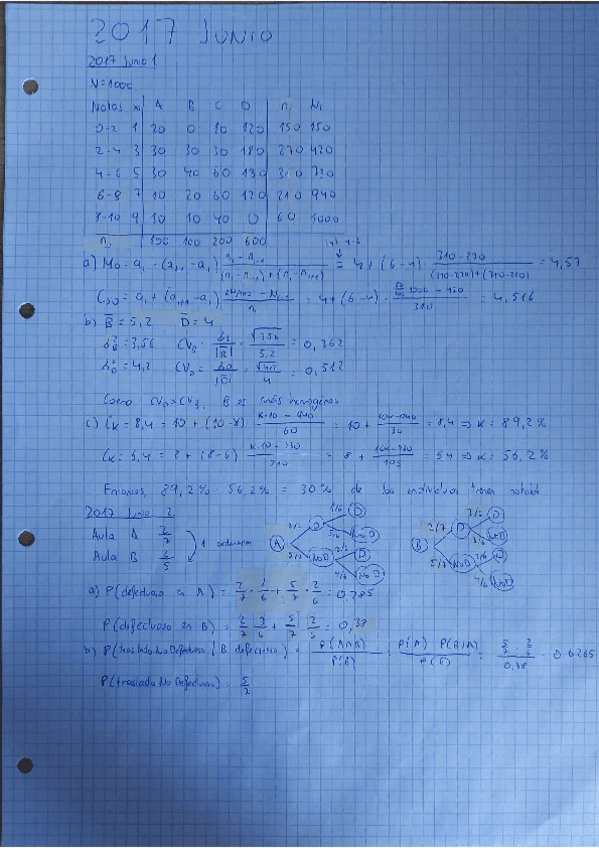 2017 JUNIO
2017 Junio 1
N=1000
Notas xi A B C D ni Ni
0-2 1 20 0 10 120 150 150
2-4 3 30 30 30 180 270 420
4-6 5 30 40 60 180 310 730
6-8 7 10 20 60 120 210 940
8-10 9 10 10 40 0 60 1000
nj 100 100 200 600
a) Mo = ai - (ai+1 - ai) (ni - ni-1) / ((ni - ni-1) + (ni - ni+1)) = 4 + (6-4) · (310-270) / ((310-270)+(310-210)) = 4,57
C50 = ai + (ai+1 - ai) = 4 + (6-4) · / 310 = 4,516
b) B̄ = 5,2 D̄ = 4
CVB = = √3,56 / 5,2 = 0,362
CVD = = / 4 = 0,512
Como CVD > CVB, B es más homogénea
c) Ck = 8,4 = 10 + (10-8) / 60 = 10 + = 8,4 ⇒ K = 89,2%
Ck = 5,4 = 8 + (8-6) = 8 + / 105 = 54 ⇒ K = 56,2%
Entonces, 89,2% - 56,2% = 30% de los individuos
2017 Junio 2
Aula A 2/7
Aula B 2/5
1 ordenador
A 2/7 D 1/6 D
5/6 NoD
5/7 NoD 2/6 D
4/6 NoD
B 2/7 D 3/6 D
3/6 NoD
5/7 NoD 2/6 D
4/6 NoD
a) P(defectuoso en A) = 2/7 · 1/6 + 5/7 · 2/6 = 0,285
P(defectuoso en B) = 2/7 · 3/6 + 5/7 · = 0,38
b) P(traslado No Defectuoso | B defectuoso) = P(A∩B) / P(B) = P(A) · P(B|A) / P(B) = / 0,38 = 0,6265
P(traslado No Defectuoso) = 5/7